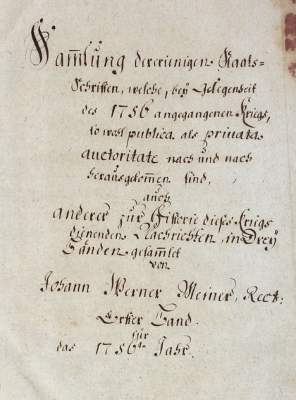 Sam̄lung dererjenigen Staats=
Schriften, welche, bey Gelegenheit
des 1756 angegangenen Kriegs,
so wohl publica als privata
auctoritate nach und nach
herausgekom̄en sind,
auch
anderer zur Historie dieses Kriegs
dienenden Nachrichten in Drey
Bänden gesam̄let
von
Johann Werner Meiner, Rect:
Erster Band.
für
das 1756te Jahr.